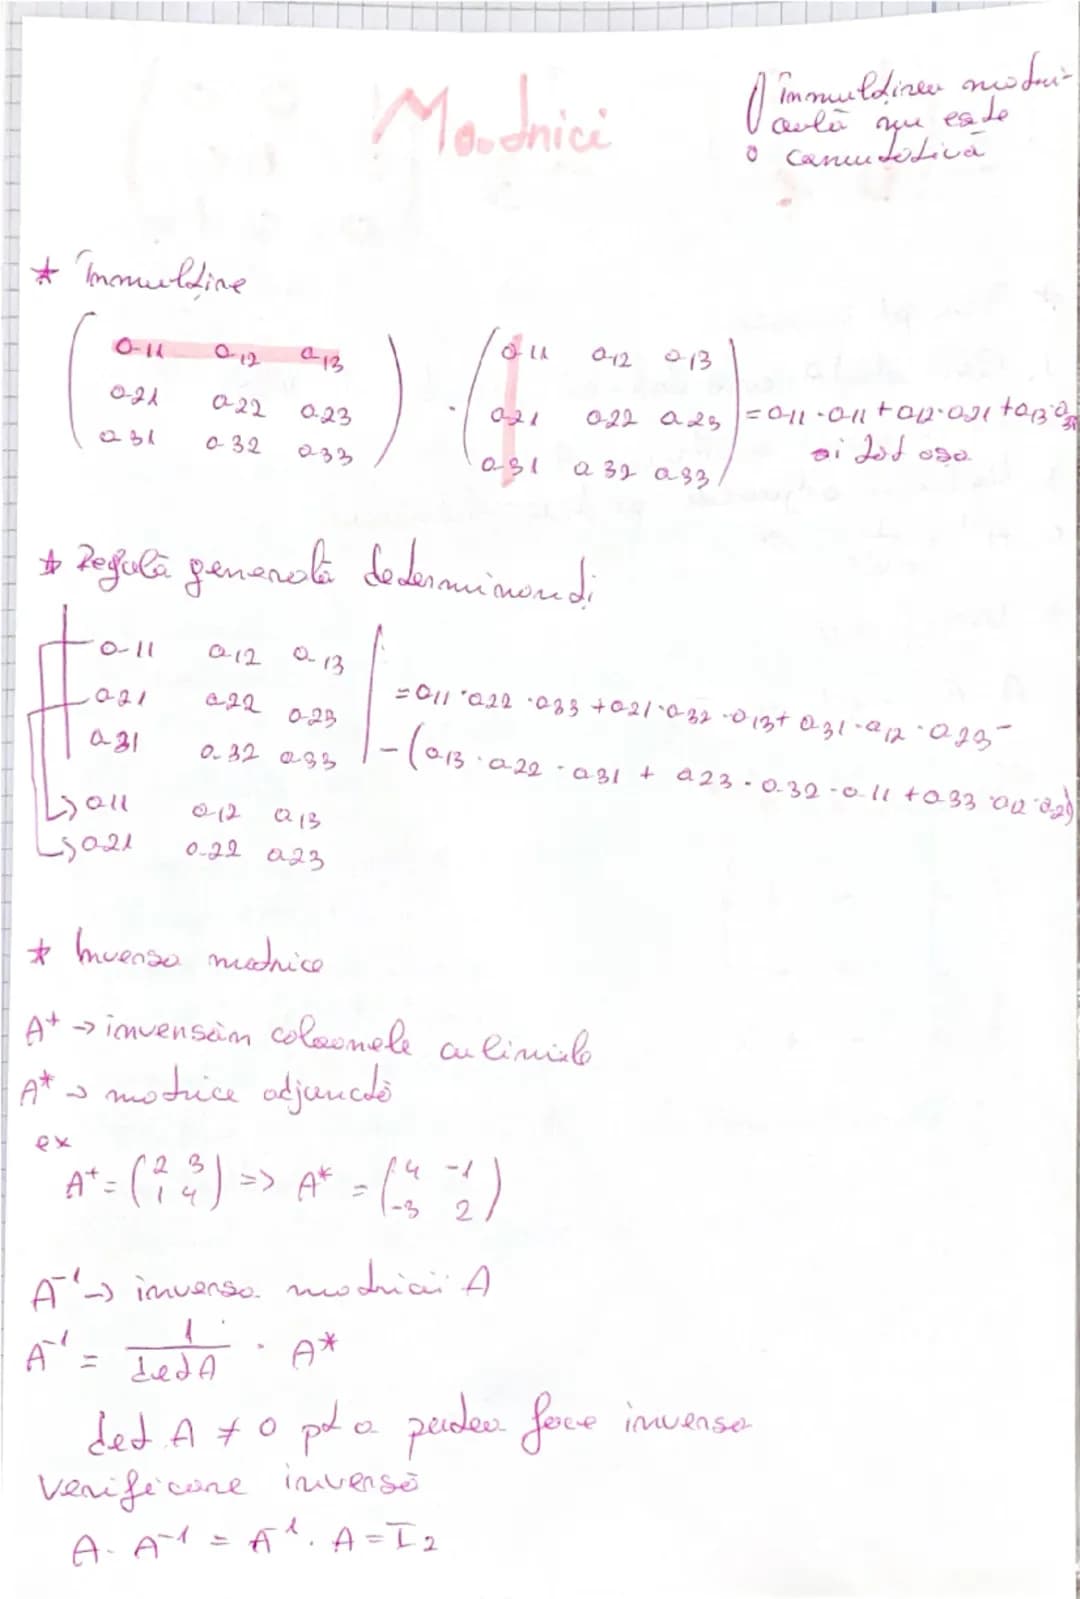 Matrici
Înmulțirea matri-
ceală nu este
comutativă
* Înmulțire
( a11 a12 a13 ) · ( a11 a12 a13 )
a21 a22 a23 a21 a22 a23 = a11·a11 + a12·a21 + a13·a31
a31 a32 a33 a31 a32 a33 și tot așa
* Regulă generală determinanți
a11 a12 a13
a21 a22 a23 = a11·a22·a33 + a21·a32·a13 + a31·a12·a23 -
a31 a32 a33 - (a13·a22·a31 + a23·a32·a11 + a33·a12·a21)
↳ a11 a12 a13
↳ a21 a22 a23
* Inversa matrice
A^t → inversăm coloanele cu liniile
A* → matrice adjunctă
ex
A^t = (2 3 / 1 4) => A* = (4 -1 / -3 2)
A^-1 → inversa matricii A
A^-1 = 1/det A · A*
det A ≠ 0 pt a putea face inversa
Verificare inversă
A · A^-1 = A^-1 · A = I2